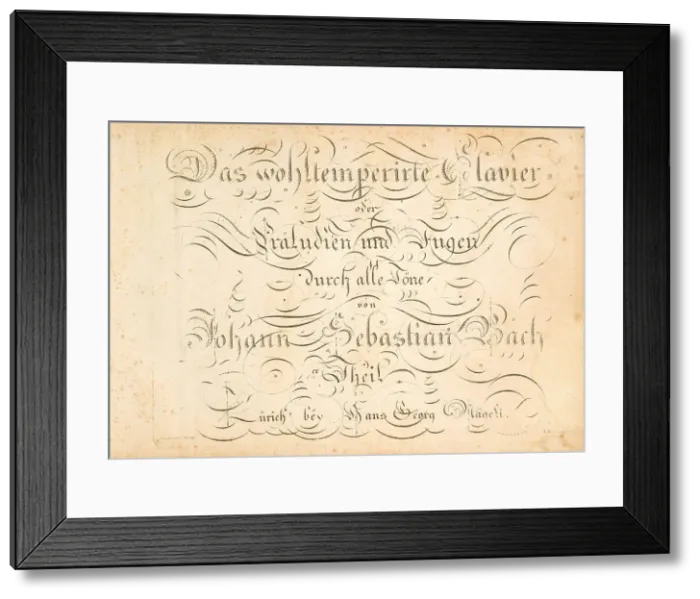 Das wohltemperirte Clavier
oder
Präludien und Fugen
durch alle Töne
von
Johann Sebastian Bach
Theil
Zürich bey Hans Georg Nägeli.